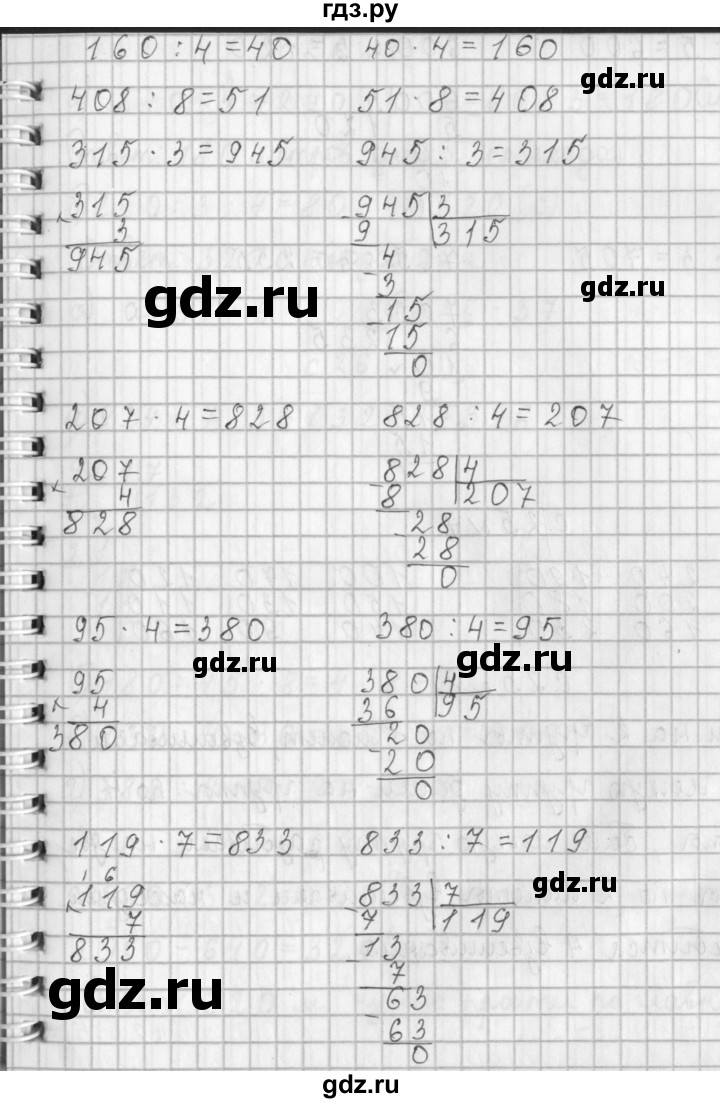 гдз.ру
160 : 4 = 40 40 · 4 = 160
gdz.ru
408 : 8 = 51 51 · 8 = 408
315 · 3 = 945 945 : 3 = 315
315 945 3
× 3 - 9 315
945 4
- 3
gdz.ru gdz.ru
- 15
15
0
207 · 4 = 828 828 : 4 = 207
207 828 4
× 4 - 8 207
828 - 28
28
0
95 · 4 = 380 380 : 4 = 95
gdz.ru gdz.ru
95 380 4
× 4 - 36 95
380 - 20
20
0
119 · 7 = 833 833 : 7 = 119
gdz.ru
1 6
119 833 7
× 7 - 7 119
833 - 13
7
gdz.ru
- 63
63
0
gdz.ru
gdz.ru